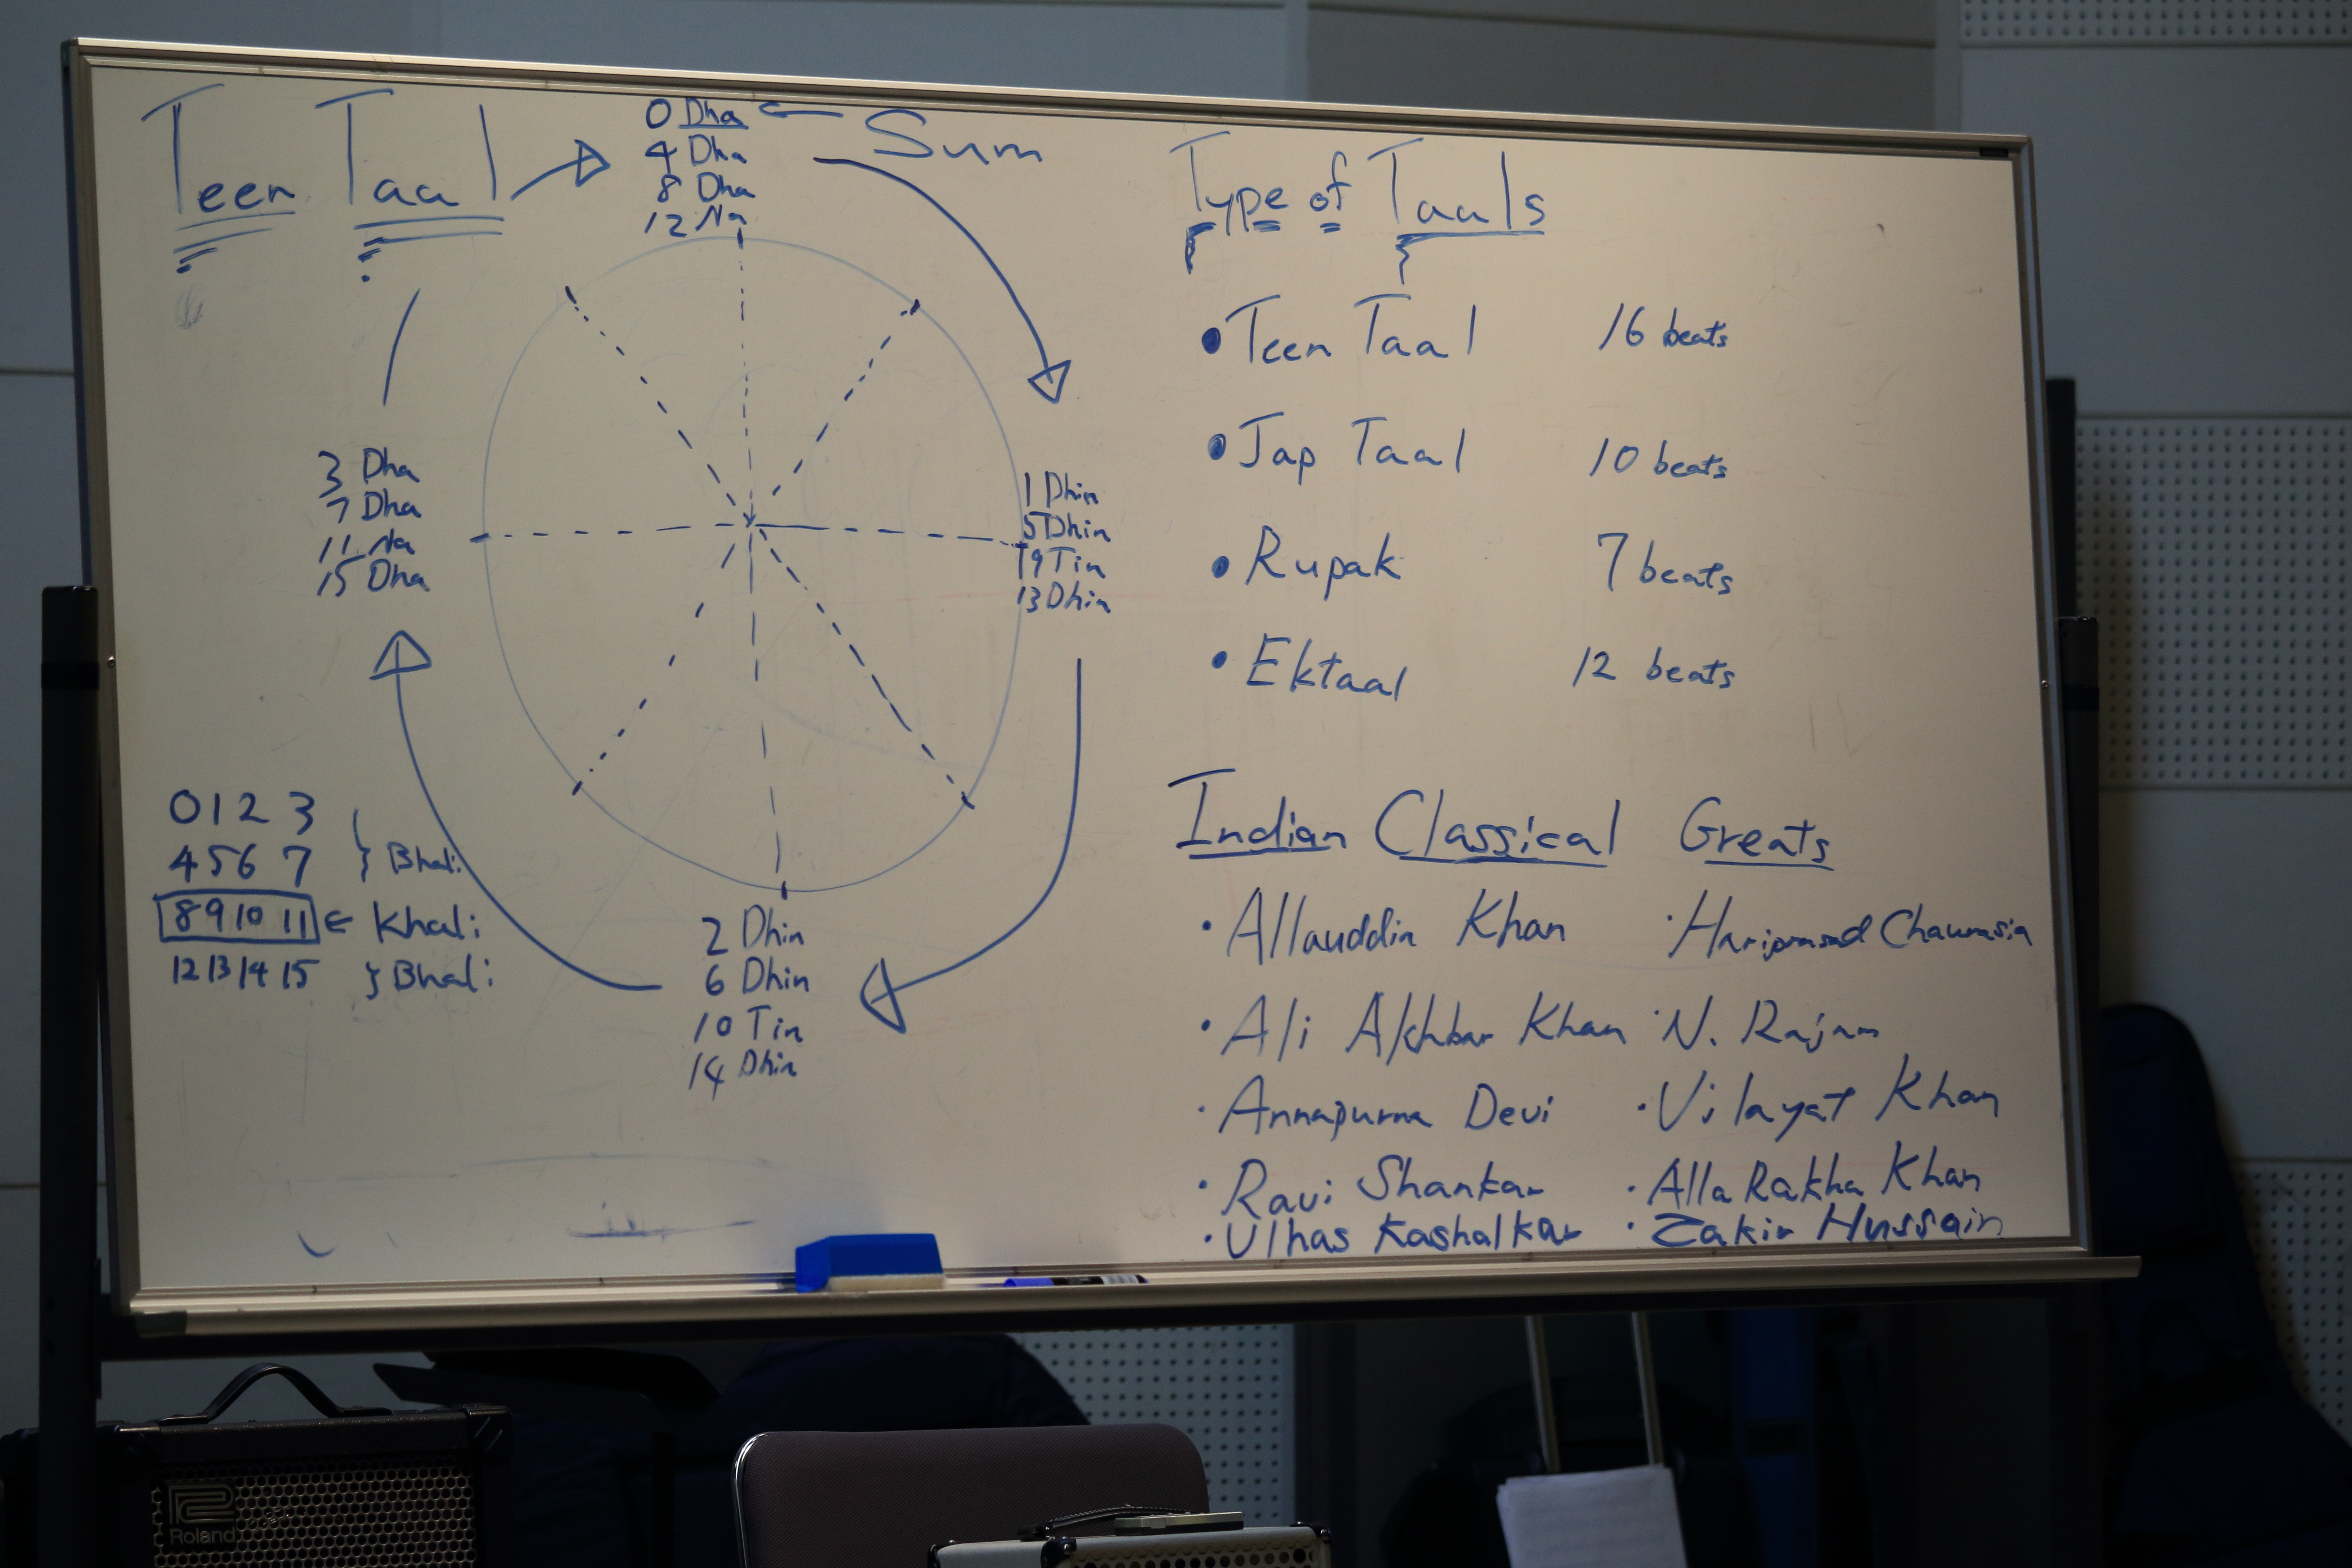 Teen Taal
0 Dha ← Sum
4 Dha
8 Dha
12 Na
1 Dhin
5 Dhin
9 Tin
13 Dhin
2 Dhin
6 Dhin
10 Tin
14 Dhin
3 Dha
7 Dha
11 Na
15 Dha
0 1 2 3
4 5 6 7 } Bhali
8 9 10 11 ← Khali
12 13 14 15 } Bhali
Type of Taals
• Teen Taal 16 beats
• Jap Taal 10 beats
• Rupak 7 beats
• Ektaal 12 beats
Indian Classical Greats
• Allauddin Khan
• Ali Akhbar Khan
• Annapurna Devi
• Ravi Shankar
• Ulhas Kashalkar
• Hariprasad Chaurasia
• N. Rajam
• Vilayat Khan
• Alla Rakha Khan
• Zakir Hussain
Roland